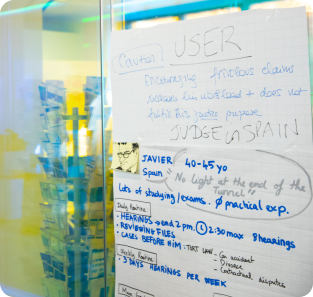 Caution USER
Encouraging frivolous claims
increases his workload + does not
fulfil this justice purpose
JUDGE in SPAIN
JAVIER 40-45 yo
Spain "No light at the end of the
Tunnel"
Lots of studying/exams. Ø practical exp.
Daily Routine
- HEARINGS → end 2pm. 2:30 max 8 hearings
- REVIEWING FILES
- CASES BEFORE HIM: TORT LAW - Car accident
- Divorce
- Contractual disputes
Weekly Routine
- 3 DAYS HEARINGS PER WEEK